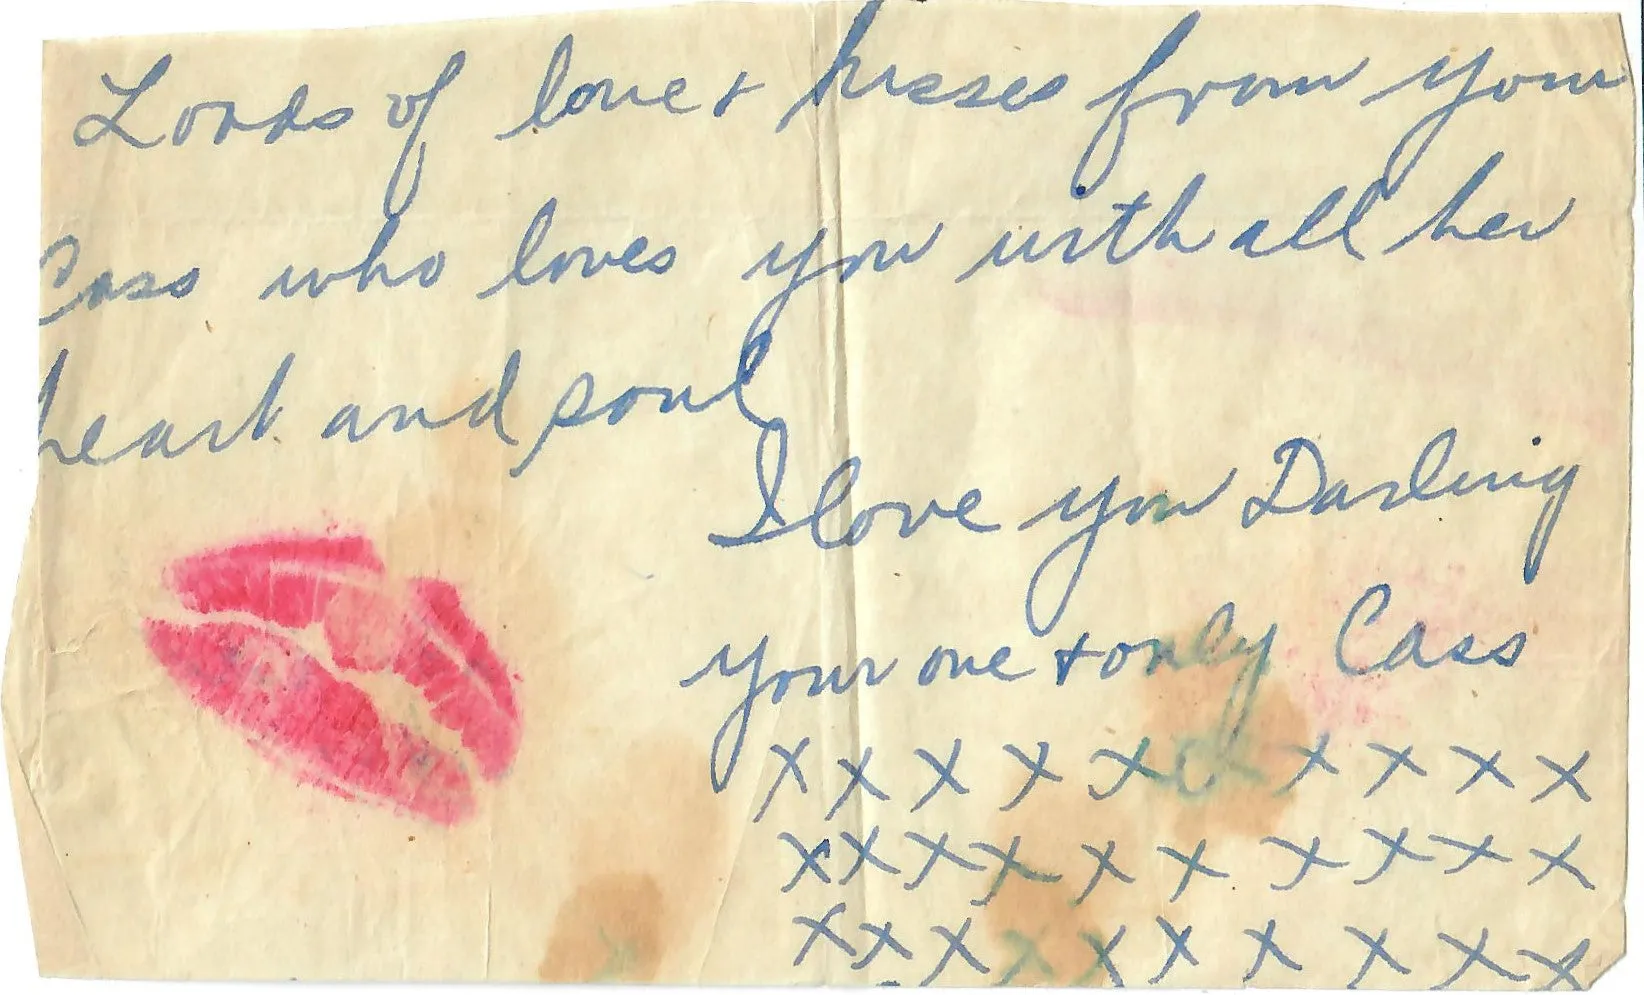 Loads of love + kisses from your
Cass who loves you with all her
heart and soul
I love you Darling
your one + only Cass
x x x x x x x x x x
x x x x x x x x x x
x x x x x x x x x x